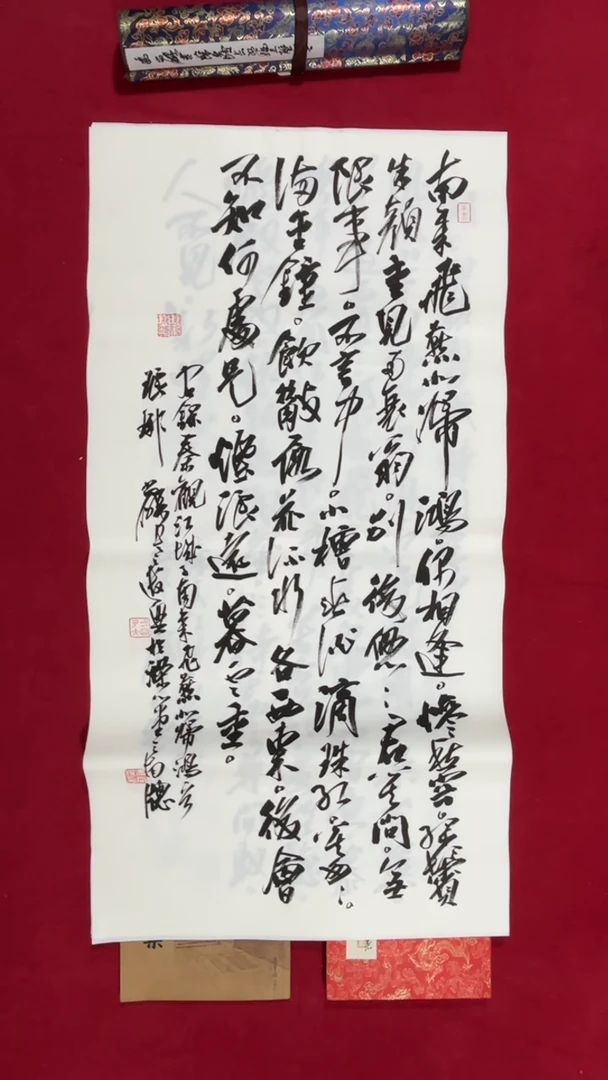 南来飛燕北歸鴻。偶相逢。慘愁容。綠鬢
朱顏重見两衰翁。別後悠々君莫問。無
限事。不言中。小槽春酒滴珠紅。莫匆々。
満金鐘。飲散落花流水各西東。後會
不知何處是。煙浪遠。暮雲重。
録秦觀江城子南来飛燕北歸鴻
琅琊